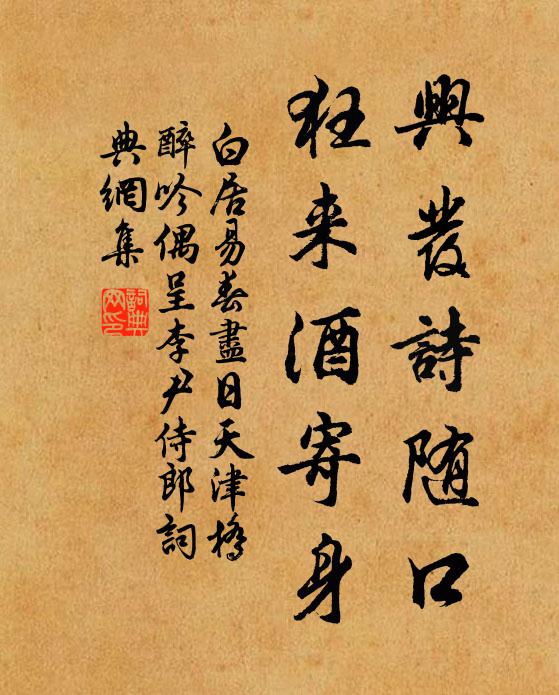 興發詩随口
狂来酒寄身
白居易春盡日天津橋
醉吟偶呈李尹侍郎詞
典網集
詞典
网印